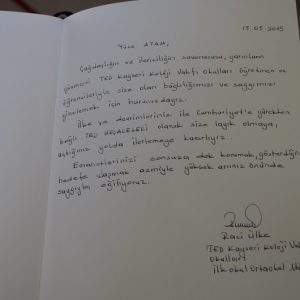 15.05.2015
Yüce ATAM,
Çağdaşlığın ve ilericiliğin savunucusu, yarınların
güvencesi TED Kayseri Koleji Vakfı Okulları öğretmen ve
öğrencileriyiz size olan bağlılığımızı ve saygımızı
göstermek için huzurundayız.
İlke ve devrimleriniz ile Cumhuriyet'e yürekten
bağlı TED MEŞALELERİ olarak size layık olmaya,
açtığınız yolda ilerlemeye kararlıyız.
Emanetlerinizi sonsuza dek korumak, gösterdiğin
hedefe ulaşmak azmiyle yüksek anınız önünde
saygıyla eğiliyoruz.
Raci Ülke
TED Kayseri Koleji Vak
Okulları
İlkokul Ortaokul